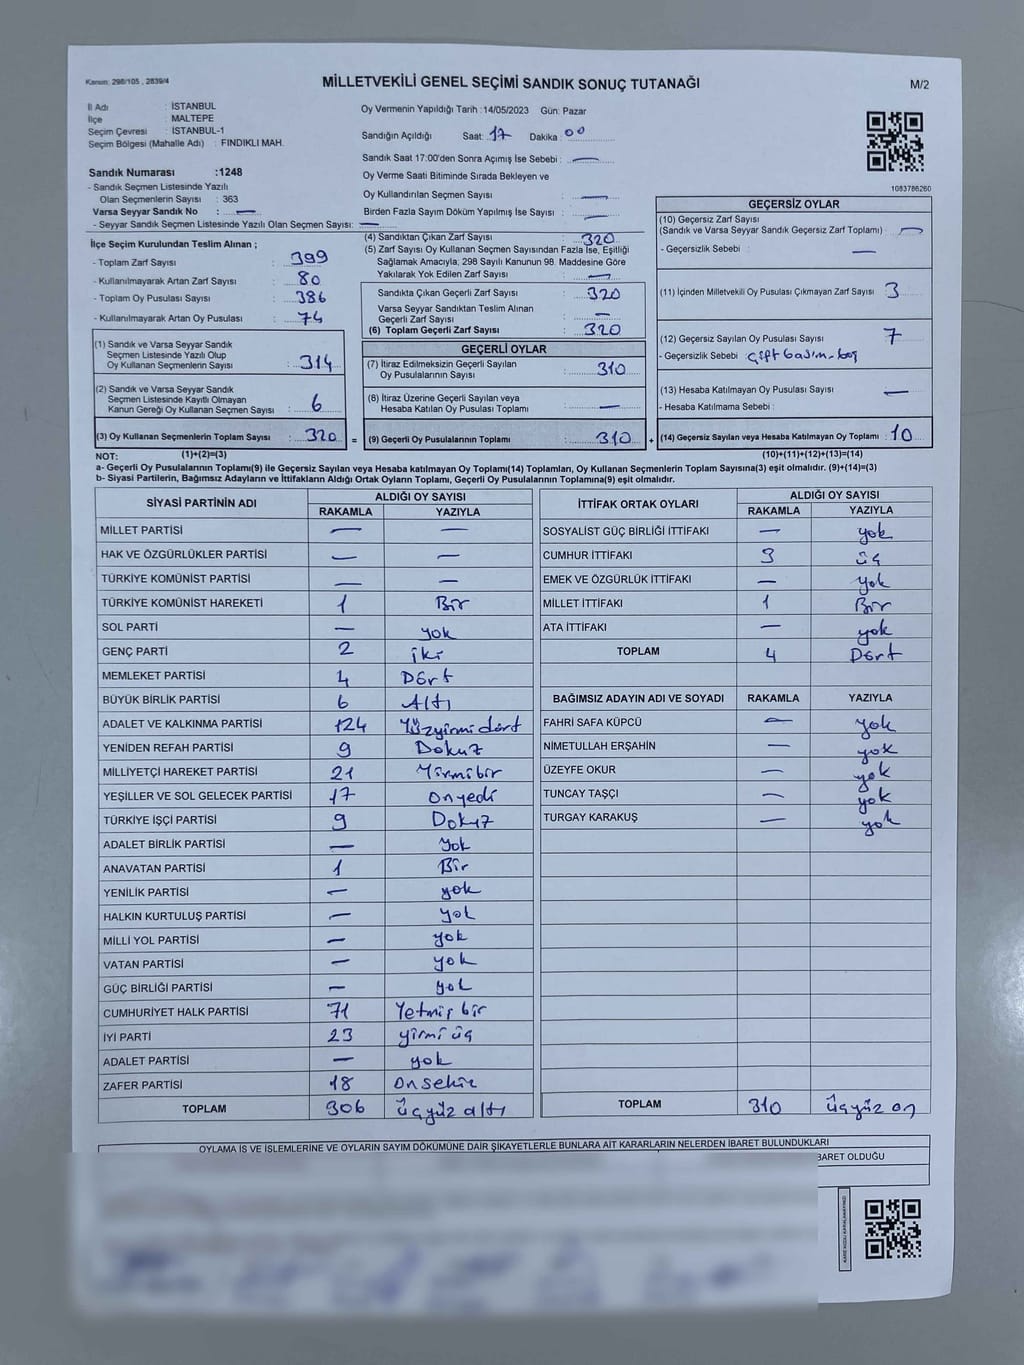 Kanun: 298/105 , 2839/4
MİLLETVEKİLİ GENEL SEÇİMİ SANDIK SONUÇ TUTANAĞI
M/2
İl Adı : İSTANBUL
İlçe : MALTEPE
Seçim Çevresi : İSTANBUL-1
Seçim Bölgesi (Mahalle Adı) : FINDIKLI MAH.
Oy Vermenin Yapıldığı Tarih : 14/05/2023 Gün: Pazar
Sandığın Açıldığı Saat: 17 Dakika: 00
Sandık Saat 17:00'den Sonra Açımış İse Sebebi : —
Oy Verme Saati Bitiminde Sırada Bekleyen ve
Oy Kullandırılan Seçmen Sayısı : —
Birden Fazla Sayım Döküm Yapılmış İse Sayısı : —
1083786260
Sandık Numarası :1248
- Sandık Seçmen Listesinde Yazılı
Olan Seçmenlerin Sayısı : 363
Varsa Seyyar Sandık No : —
- Seyyar Sandık Seçmen Listesinde Yazılı Olan Seçmen Sayısı: —
İlçe Seçim Kurulundan Teslim Alınan ;
- Toplam Zarf Sayısı : 399
- Kullanılmayarak Artan Zarf Sayısı : 80
- Toplam Oy Pusulası Sayısı : 386
- Kullanılmayarak Artan Oy Pusulası : 74
(1) Sandık ve Varsa Seyyar Sandık
Seçmen Listesinde Yazılı Olup
Oy Kullanan Seçmenlerin Sayısı : 314
(2) Sandık ve Varsa Seyyar Sandık
Seçmen Listesinde Kayıtlı Olmayan
Kanun Gereği Oy Kullanan Seçmen Sayısı : 6
(3) Oy Kullanan Seçmenlerin Toplam Sayısı : 320 =
(4) Sandıktan Çıkan Zarf Sayısı : 320
(5) Zarf Sayısı Oy Kullanan Seçmen Sayısından Fazla İse, Eşitliği
Sağlamak Amacıyla; 298 Sayılı Kanunun 98. Maddesine Göre
Yakılarak Yok Edilen Zarf Sayısı : —
Sandıkta Çıkan Geçerli Zarf Sayısı : 320
Varsa Seyyar Sandıktan Teslim Alınan
Geçerli Zarf Sayısı : —
(6) Toplam Geçerli Zarf Sayısı : 320
GEÇERLİ OYLAR
(7) İtiraz Edilmeksizin Geçerli Sayılan
Oy Pusulalarının Sayısı : 310
(8) İtiraz Üzerine Geçerli Sayılan veya
Hesaba Katılan Oy Pusulası Toplamı : —
(9) Geçerli Oy Pusulalarının Toplamı : 310 +
GEÇERSİZ OYLAR
(10) Geçersiz Zarf Sayısı
(Sandık ve Varsa Seyyar Sandık Geçersiz Zarf Toplamı) : —
- Geçersizlik Sebebi : —
(11) İçinden Milletvekili Oy Pusulası Çıkmayan Zarf Sayısı : 3
(12) Geçersiz Sayılan Oy Pusulası Sayısı : 7
- Geçersizlik Sebebi : çift basım-boş
(13) Hesaba Katılmayan Oy Pusulası Sayısı : —
- Hesaba Katılmama Sebebi :
(14) Geçersiz Sayılan veya Hesaba Katılmayan Oy Toplamı : 10
NOT: (1)+(2)=(3) (10)+(11)+(12)+(13)=(14)
a- Geçerli Oy Pusulalarının Toplamı(9) ile Geçersiz Sayılan veya Hesaba katılmayan Oy Toplamı(14) Toplamları, Oy Kullanan Seçmenlerin Toplam Sayısına(3) eşit olmalıdır. (9)+(14)=(3)
b- Siyasi Partilerin, Bağımsız Adayların ve İttifakların Aldığı Ortak Oyların Toplamı, Geçerli Oy Pusulalarının Toplamına(9) eşit olmalıdır.
SİYASİ PARTİNİN ADI ALDIĞI OY SAYISI
RAKAMLA YAZIYLA
MİLLET PARTİSİ — —
HAK VE ÖZGÜRLÜKLER PARTİSİ — —
TÜRKİYE KOMÜNİST PARTİSİ — —
TÜRKİYE KOMÜNİST HAREKETİ 1 Bir
SOL PARTİ — yok
GENÇ PARTİ 2 iki
MEMLEKET PARTİSİ 4 Dört
BÜYÜK BİRLİK PARTİSİ 6 Altı
ADALET VE KALKINMA PARTİSİ 124 Yüzyirmidört
YENİDEN REFAH PARTİSİ 9 Dokuz
MİLLİYETÇİ HAREKET PARTİSİ 21 Yirmibir
YEŞİLLER VE SOL GELECEK PARTİSİ 17 Onyedi
TÜRKİYE İŞÇİ PARTİSİ 9 Dokuz
ADALET BİRLİK PARTİSİ — Yok
ANAVATAN PARTİSİ 1 Bir
YENİLİK PARTİSİ — yok
HALKIN KURTULUŞ PARTİSİ — yok
MİLLİ YOL PARTİSİ — yok
VATAN PARTİSİ — yok
GÜÇ BİRLİĞİ PARTİSİ — yok
CUMHURİYET HALK PARTİSİ 71 Yetmiş bir
İYİ PARTİ 23 yirmi üç
ADALET PARTİSİ — yok
ZAFER PARTİSİ 18 Onsekiz
TOPLAM 306 üçyüz altı
İTTİFAK ORTAK OYLARI ALDIĞI OY SAYISI
RAKAMLA YAZIYLA
SOSYALİST GÜÇ BİRLİĞİ İTTİFAKI — yok
CUMHUR İTTİFAKI 3 üç
EMEK VE ÖZGÜRLÜK İTTİFAKI — yok
MİLLET İTTİFAKI 1 Bir
ATA İTTİFAKI — yok
TOPLAM 4 Dört
BAĞIMSIZ ADAYIN ADI VE SOYADI RAKAMLA YAZIYLA
FAHRİ SAFA KÜPCÜ — yok
NİMETULLAH ERŞAHİN — yok
ÜZEYFE OKUR — yok
TUNCAY TAŞÇI — yok
TURGAY KARAKUŞ — yok
TOPLAM 310 üçyüz on
OYLAMA İŞ VE İŞLEMLERİNE VE OYLARIN SAYIM DÖKÜMÜNE DAİR ŞİKAYETLERLE BUNLARA AİT KARARLARIN NELERDEN İBARET BULUNDUKLARI
BARET OLDUĞU